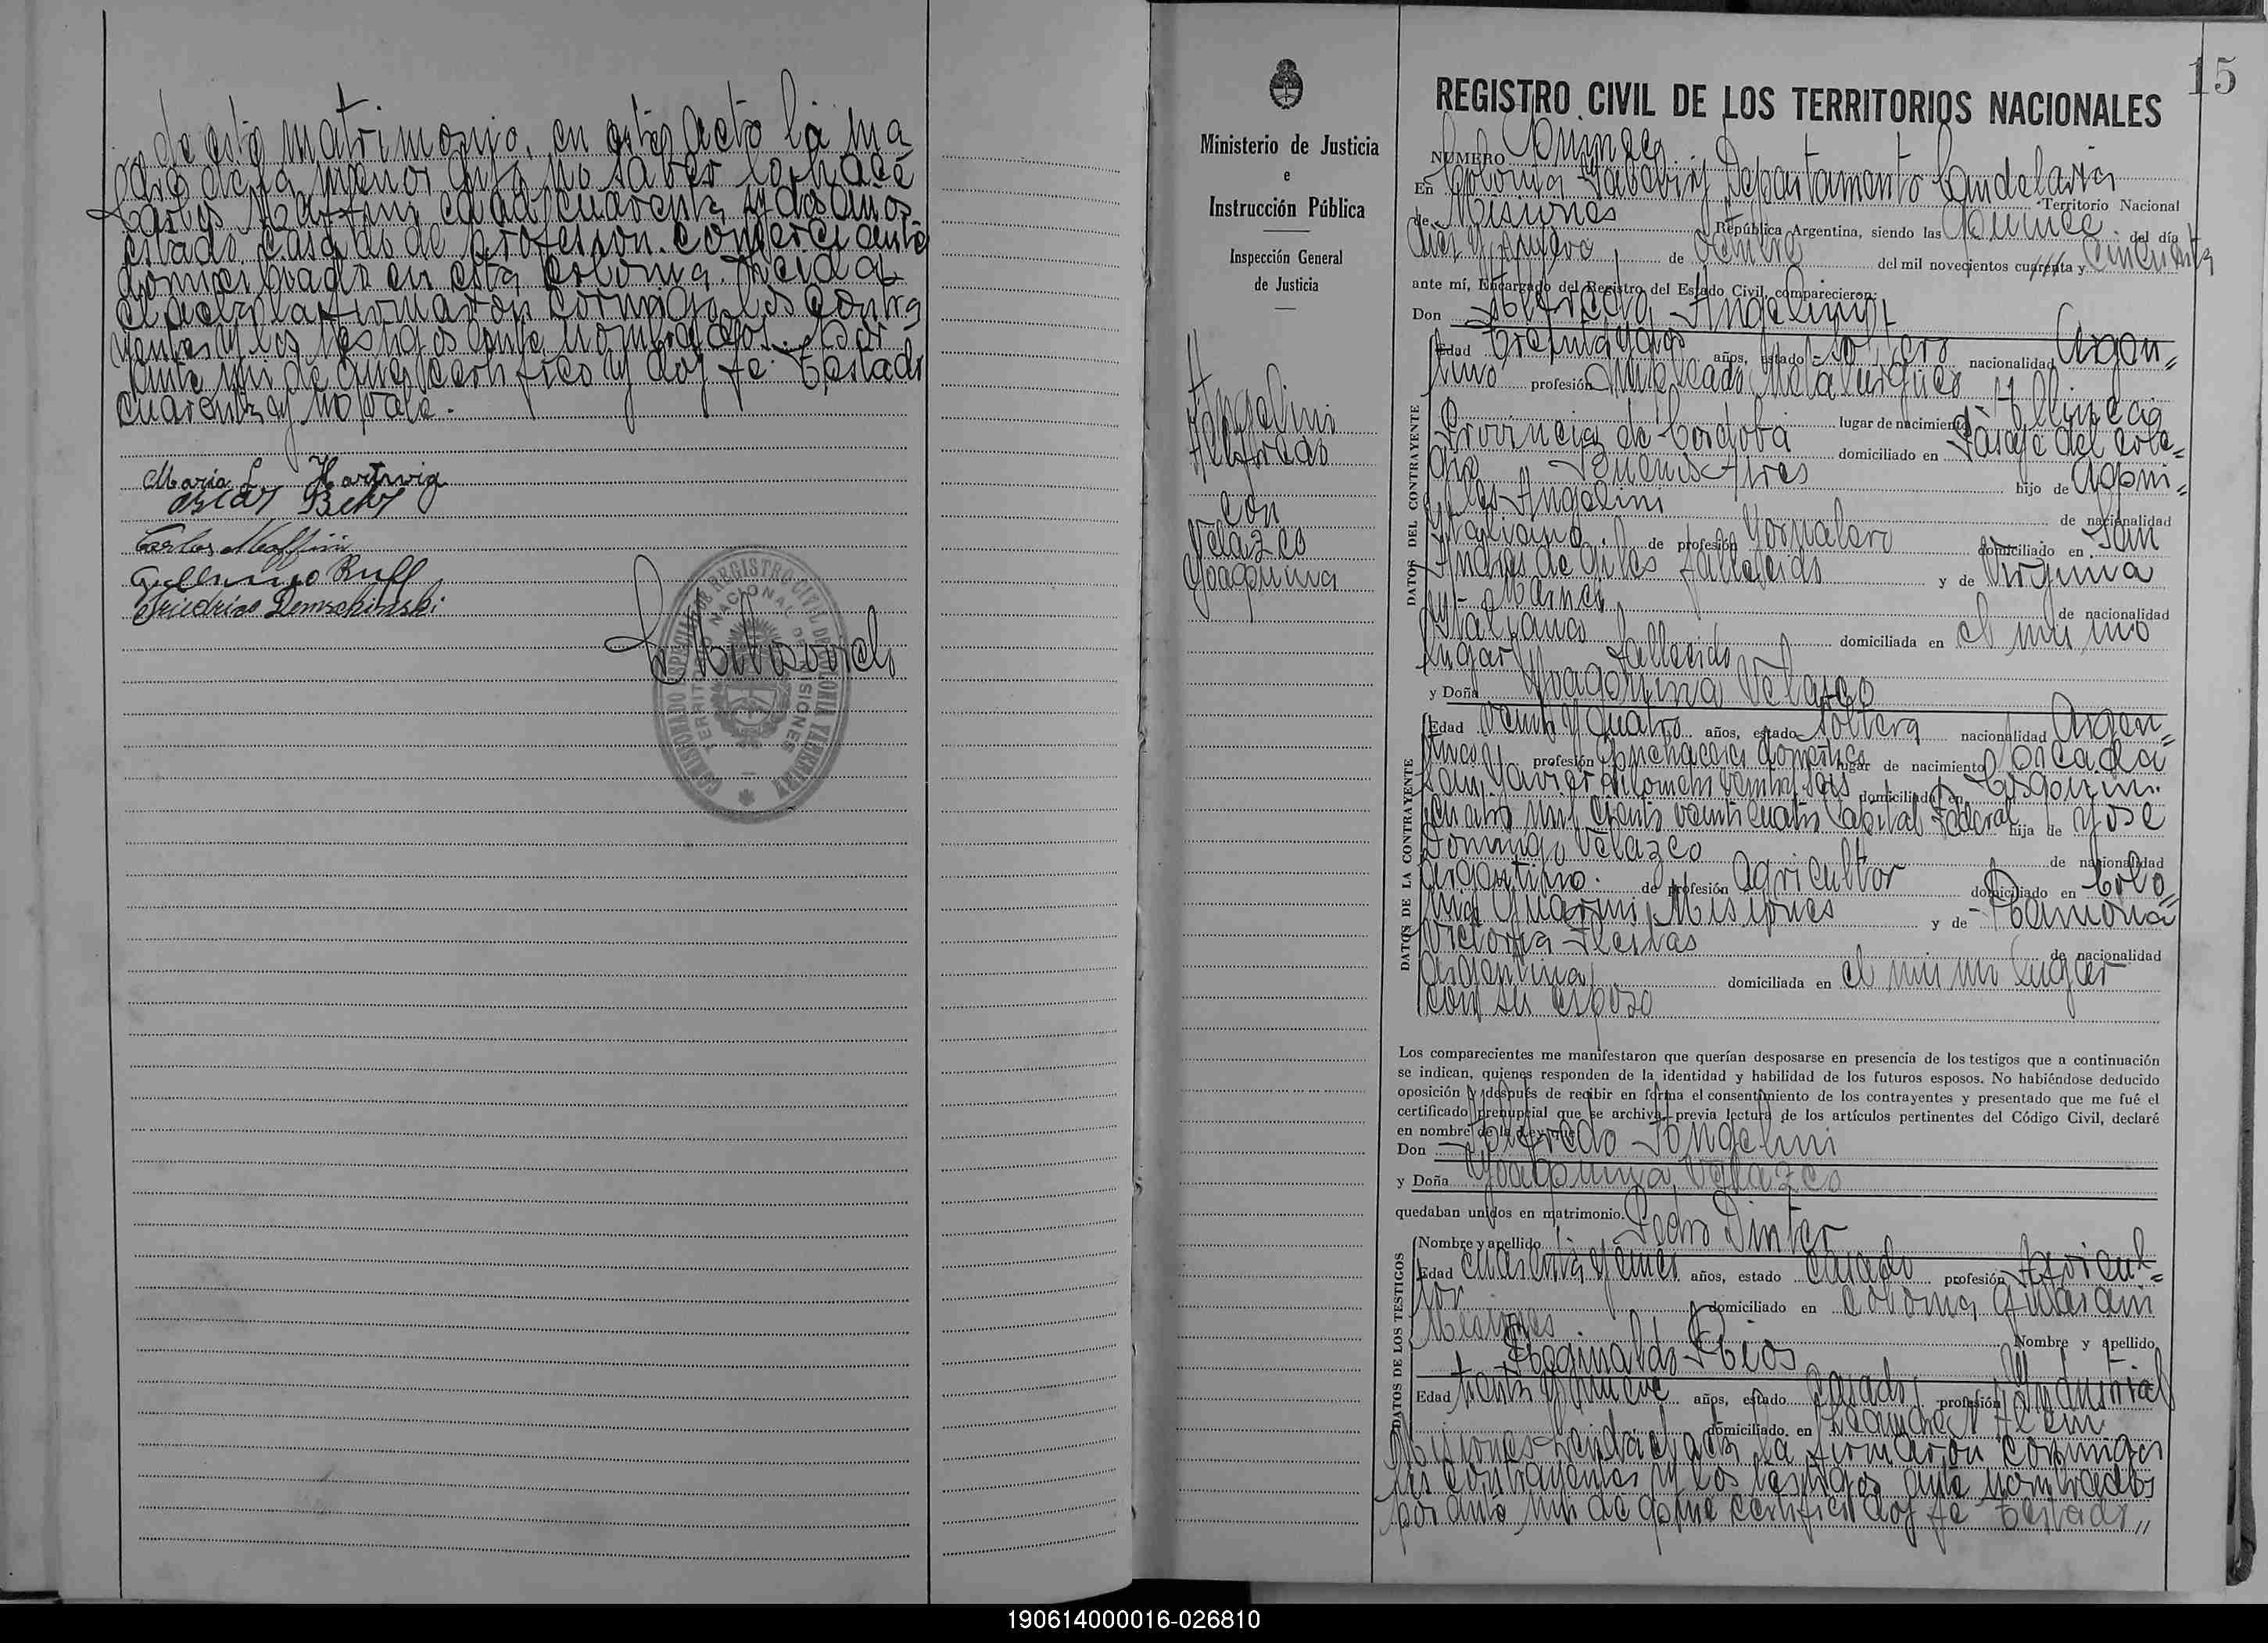 de este matrimonio, en este acto la ma
dre de la menor por no saber lo hace
Carlos Maffini edad cuarenta y dos años
estado casado de profesion comerciante
domiciliado en esta Colonia. Leida
el acta la firmaron conmigo los contra
yentes y los testigos ante nombrados. Por
ante mi de que certifico y doy fe. Testado
cuarenta y no vale.
Maria L. Hartwig
Oscar Beck
Carlos Maffini
Guillermo Ruff
COMISIONADO ESPECIAL DEL REGISTRO CIVIL DE COLONIA YABEBIRY
TERRITORIO NACIONAL DE MISIONES
15
Ministerio de Justicia
e
Instrucción Pública
Inspección General
de Justicia
Angelini
Alfredo
con
Velazco
Joaquina
REGISTRO CIVIL DE LOS TERRITORIOS NACIONALES
NUMERO Quince
En Colonia Yabebiry Departamento Candelaria Territorio Nacional
de Misiones República Argentina, siendo las quince del día
diez y nueve de del mil novecientos cuarenta y cincuenta
ante mí, Encargado del Registro del Estado Civil, comparecieron:
Don Alfredo Angelini
DATOS DEL CONTRAYENTE
Edad treinta y dos años, estado soltero nacionalidad Argen=
tino profesión lugar de nacimiento
Provincia de Cordoba domiciliado en Pasaje del Cole=
gio Buenos Aires hijo de
Angelini de nacionalidad
Italiano de profesión Jornalero domiciliado en San
Andres de Giles fallecido y de Virginia
de nacionalidad
Italiana domiciliada en el mismo
lugar fallecido
y Doña Joaquina Velazco
DATOS DE LA CONTRAYENTE
Edad veinti y cuatro años, estado soltera nacionalidad Argen=
tina profesión domestica lugar de nacimiento Picada
San Javier kilometro veinti seis domiciliada en
cuatro mil ciento veinticuatro Capital Federal hija de Jose
Domingo Velazco de nacionalidad
argentino. de profesión Agricultor domiciliado en Colo=
nia Guarani Misiones y de Ramona
Victoria de nacionalidad
argentina domiciliada en el mismo lugar
con su esposo
Los comparecientes me manifestaron que querían desposarse en presencia de los testigos que a continuación
se indican, quienes responden de la identidad y habilidad de los futuros esposos. No habiéndose deducido
oposición y después de recibir en forma el consentimiento de los contrayentes y presentado que me fué el
certificado prenupcial que se archiva, previa lectura de los artículos pertinentes del Código Civil, declaré
en nombre de la Ley que
Don Alfredo Angelini
y Doña Joaquina Velazco
quedaban unidos en matrimonio.
DATOS DE LOS TESTIGOS
Nombre y apellido Pedro Dinter
Edad cuarenta y años, estado casado profesión Agricul=
tor domiciliado en Colonia Guarani
Misiones Nombre y apellido
Reginaldo Rios
Edad treinta y nueve años, estado casado profesión Industrial
domiciliado en Leandro N Alem
Misiones Leida el acta la firmaron conmigo
los contrayentes y los testigos ante nombrados
por ante mi de que certifico doy fe Testado,,
190614000016-026810